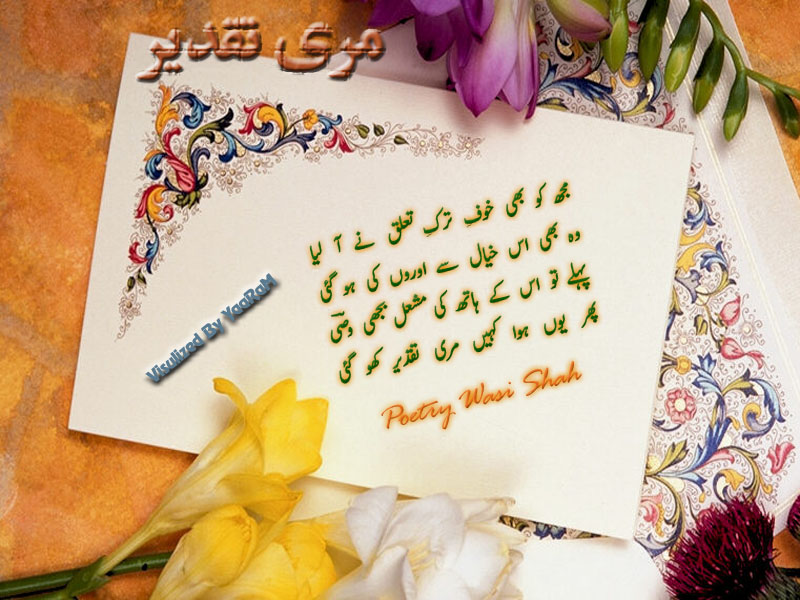 مری تقدیر
مجھ کو بھی خوفِ ترکِ تعلق نے آ لیا
وہ بھی اس خیال سے اوروں کی ہو گئی
پہلے تو اس کے ہاتھ کی مشعل بجھی وصیؔ
پھر یوں ہوا کہیں مری تقدیر کھو گئی
Poetry Wasi Shah
Visulized By YaaRaM